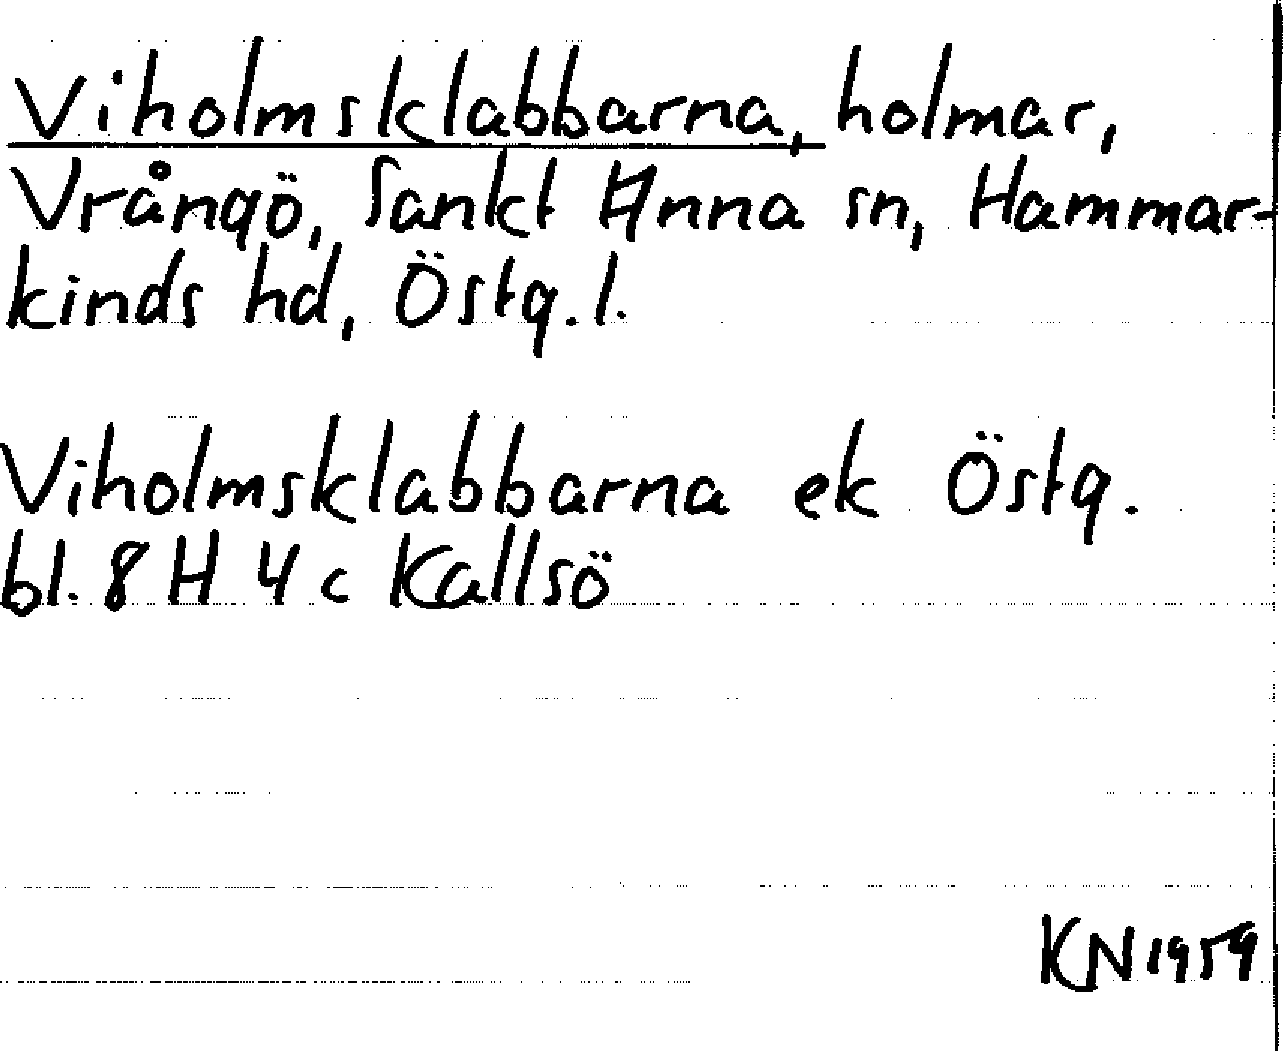 Viholmsklabbarna, holmar,
Vrångö, Sankt Anna sn, Hammar-
kinds hd, Östg. l.
Viholmsklabbarna ek Östg.
bl. 8 H 4 c Kallsö
KN 1959